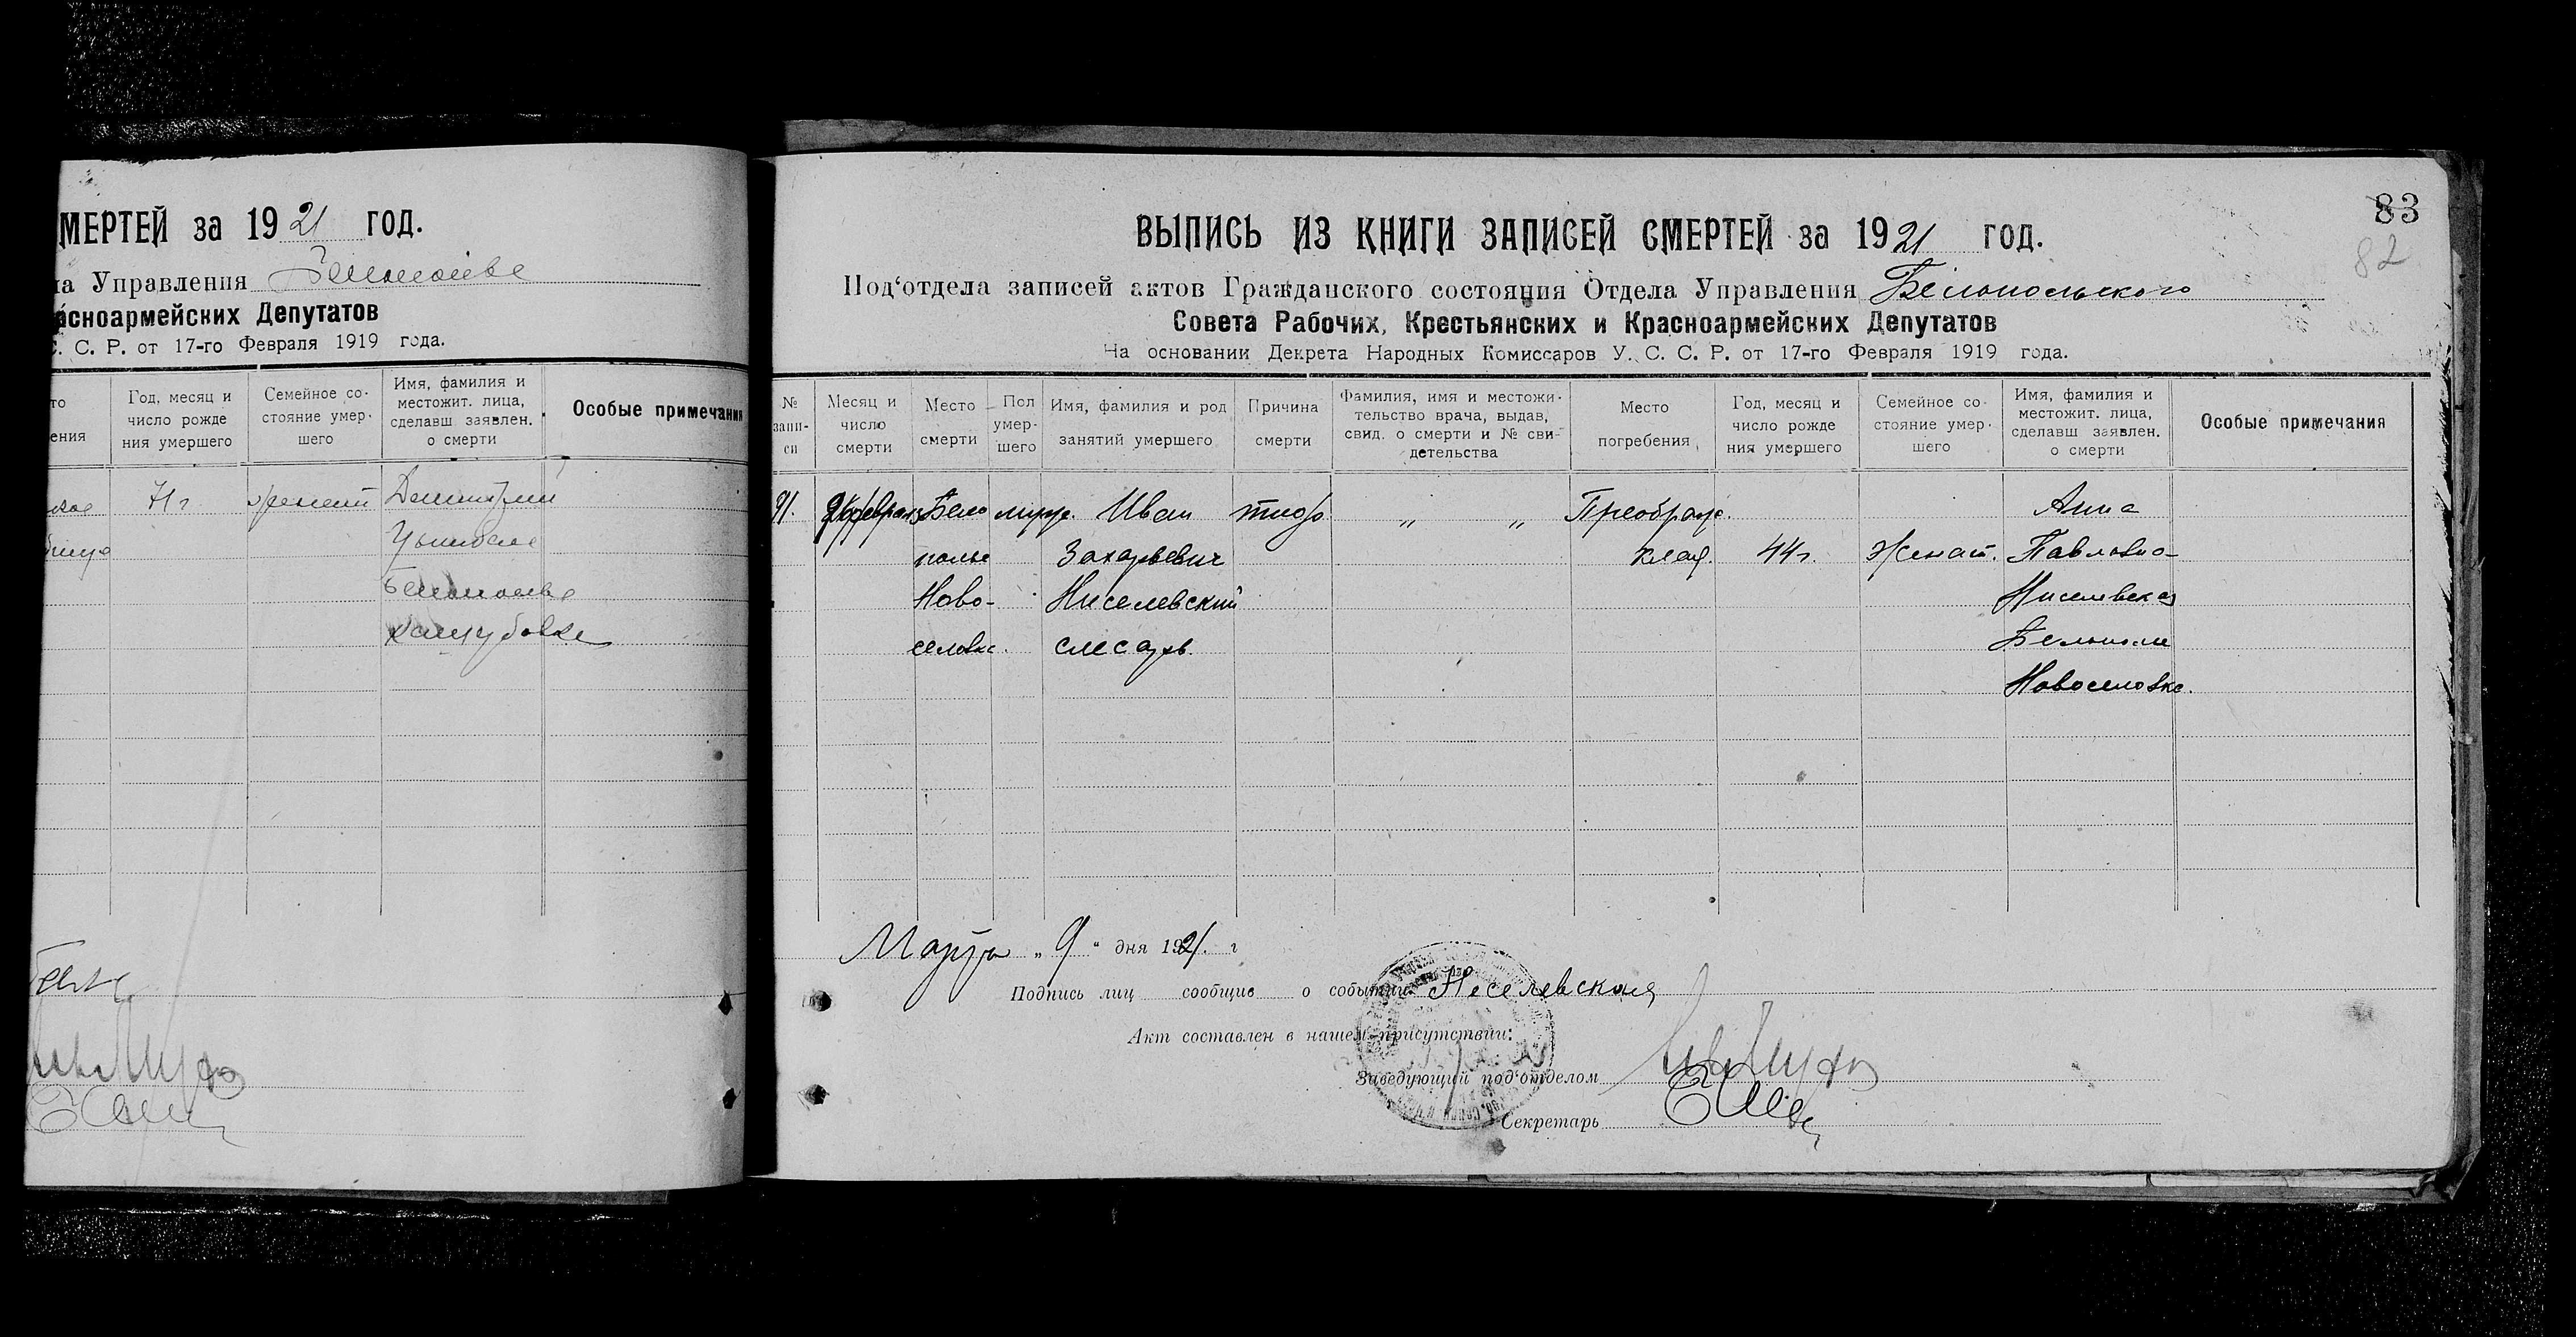 МЕРТЕЙ за 1921 год.
на Управления Белополье
асноармейских Депутатов
С. С. Р. от 17-го Февраля 1919 года.
то
ения
Год, месяц и
число рожде
ния умершего
Семейное со-
стояние умер-
шего
Имя, фамилия и
местожит. лица,
сделавш заявлен.
о смерти
Особые примечания
71 г. женат
Белополье
83
82
ВЫПИСЬ ИЗ КНИГИ ЗАПИСЕЙ СМЕРТЕЙ за 1921 год.
Под‘отдела записей актов Гражданского состояния Отдела Управления Белопольского
Совета Рабочих, Крестьянских и Красноармейских Депутатов
На основании Декрета Народных Комиссаров У. С. С. Р. от 17-го Февраля 1919 года.
№
запи-
си
Месяц и
число
смерти
Место
смерти
Пол
умер-
шего
Имя, фамилия и род
занятий умершего
Причина
смерти
Фамилия, имя и местожи-
тельство врача, выдав,
свид. о смерти и № сви-
детельства
Место
погребения
Год, месяц и
число рожде
ния умершего
Семейное со-
стояние умер-
шего
Имя, фамилия и
местожит. лица,
сделавш заявлен.
о смерти
Особые примечания
91. феврал Бело Иван тиф „ „ Преображ. Анна
полье Захарьевич клад. 44 г. Женат. Павловна
Ново- Киселевский Киселевская
селовка. слесарь. Белополье
Новоселовка.
Марта „9“ дня 1921. г
Подпись лиц сообщив о событии Киселевская
Акт составлен в нашем присутствии:
Заведующий под‘отделом
Секретарь